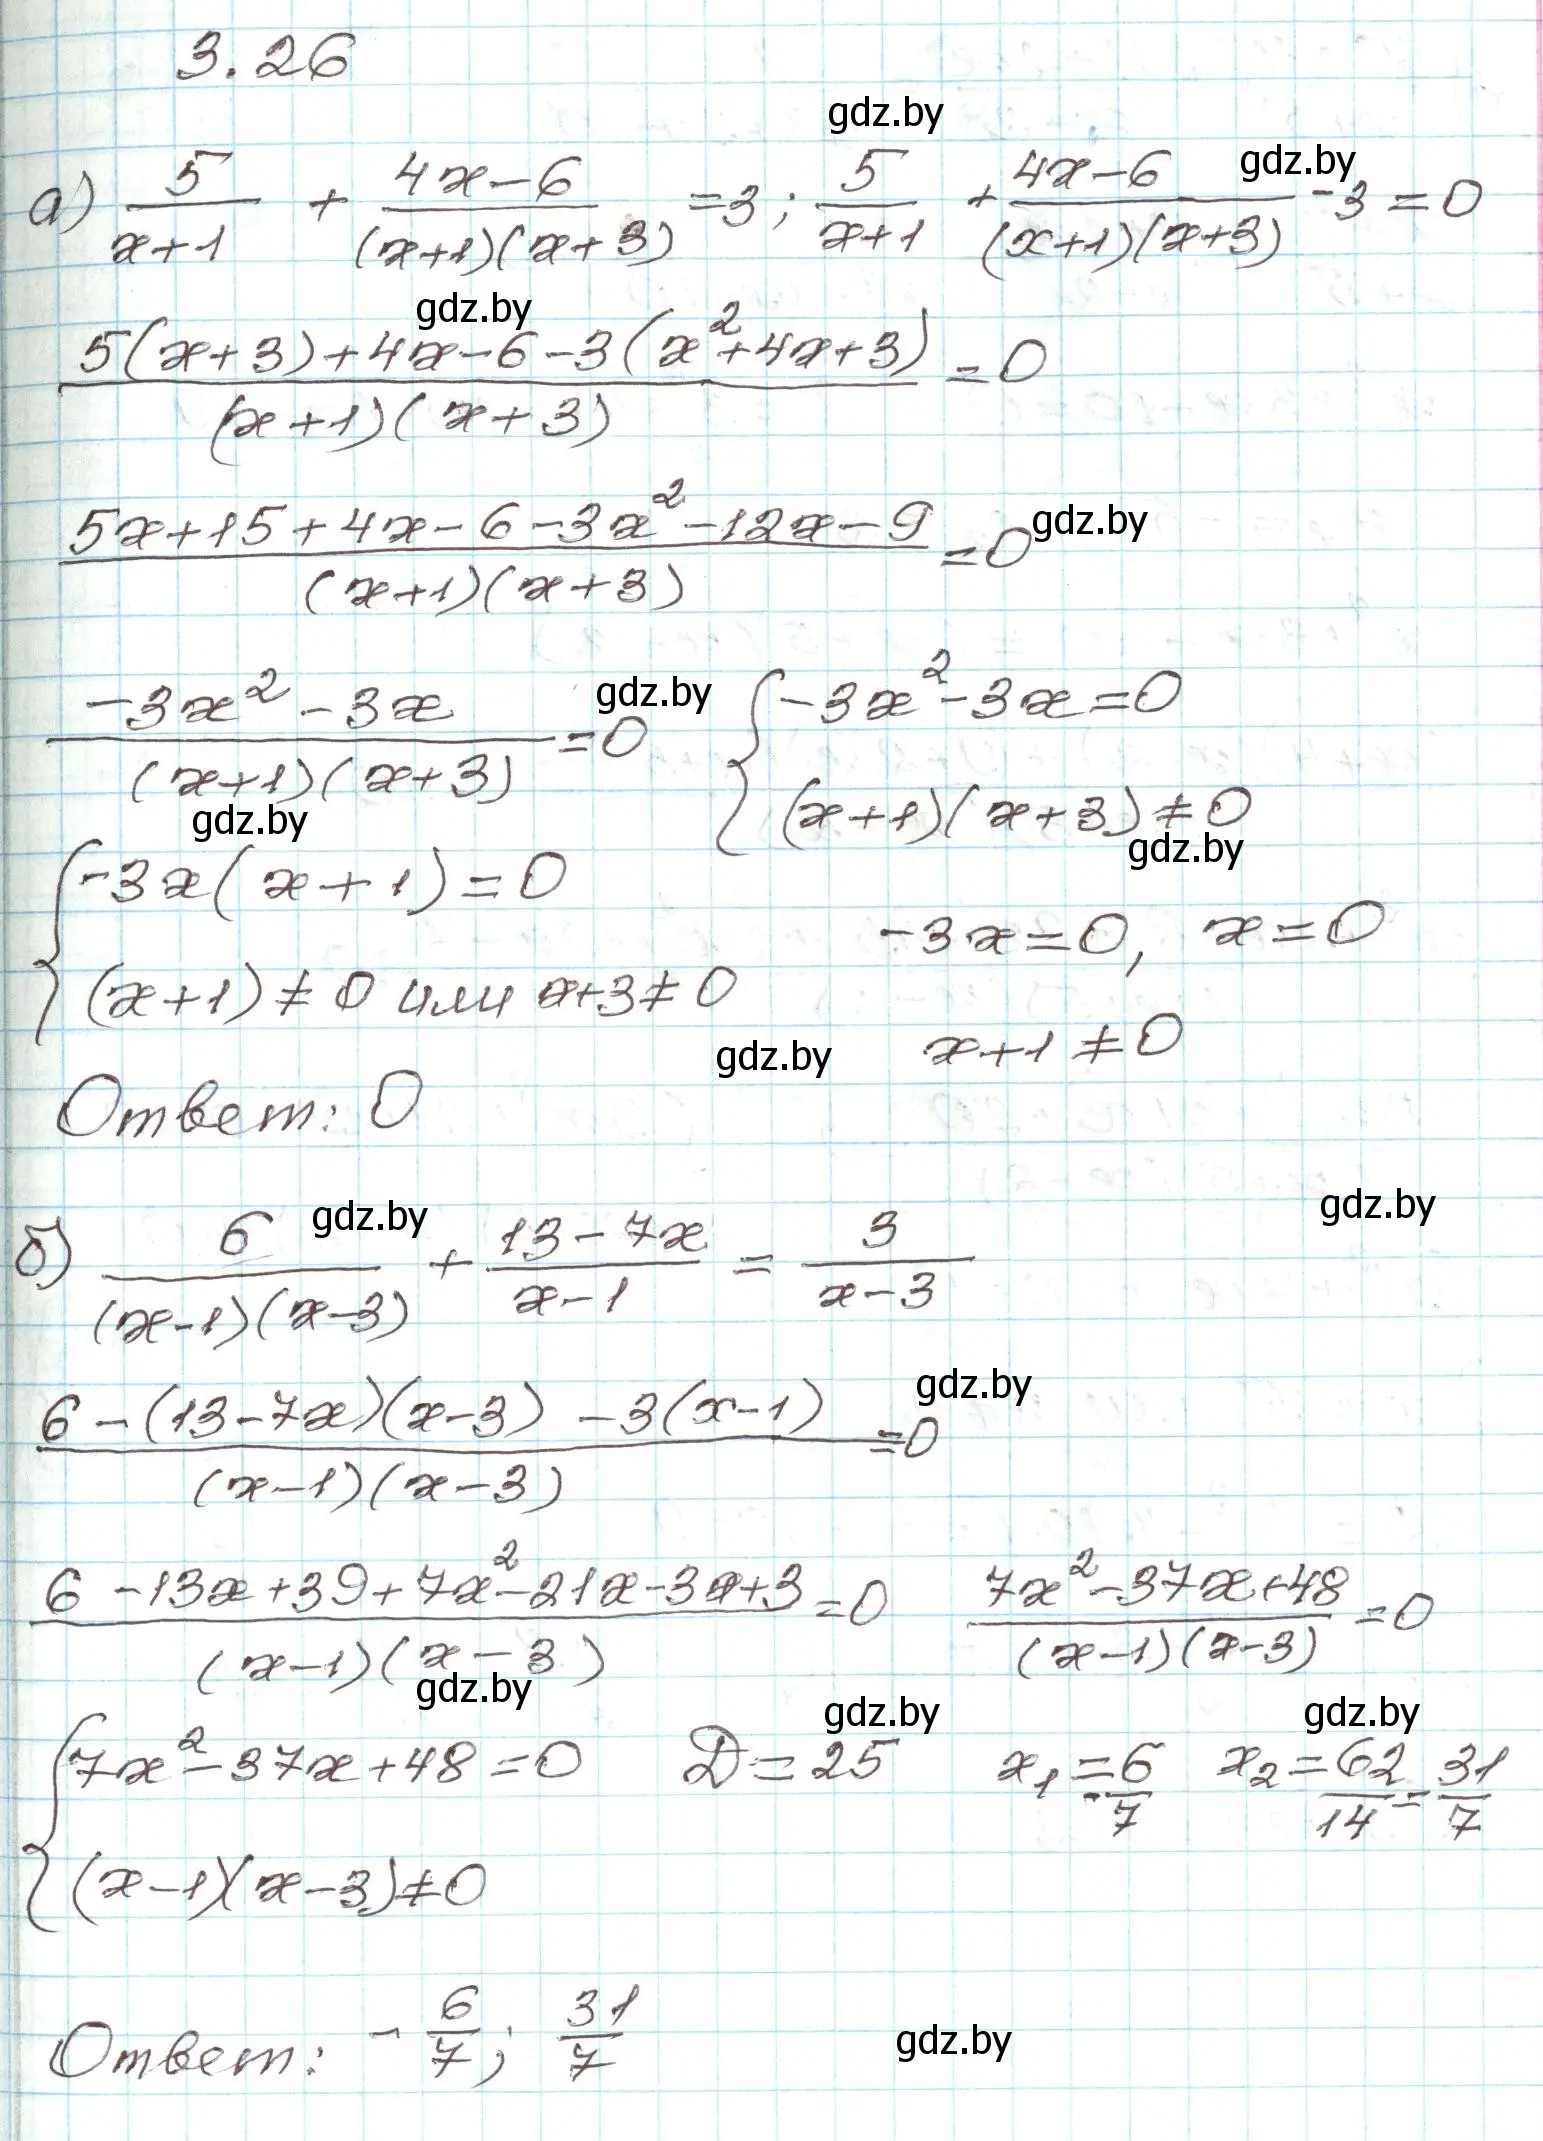 3.26
gdz.by
а) 5/(x+1) + (4x-6)/((x+1)(x+3)) =3; 5/(x+1) + (4x-6)/((x+1)(x+3)) -3=0
gdz.by
gdz.by
(5(x+3)+4x-6-3(x²+4x+3))/((x+1)(x+3)) =0
(5x+15+4x-6-3x²-12x-9)/((x+1)(x+3)) =0
gdz.by
(-3x²-3x)/((x+1)(x+3)) =0 { -3x²-3x=0
gdz.by
(x+1)(x+3)≠0
gdz.by
gdz.by
{ -3x(x+1)=0
-3x=0, x=0
(x+1)≠0 или x+3≠0
x+1≠0
gdz.by
Ответ: 0
б) 6/((x-1)(x-3)) + (13-7x)/(x-1) = 3/(x-3)
gdz.by
gdz.by
(6-(13-7x)(x-3)-3(x-1))/((x-1)(x-3)) =0
gdz.by
(6-13x+39+7x²-21x-3x+3)/((x-1)(x-3)) =0 (7x²-37x+48)/((x-1)(x-3)) =0
gdz.by
gdz.by
gdz.by
{ 7x²-37x+48=0 D=25 x₁=-6/7 x₂=62/14=31/7
(x-1)(x-3)≠0
Ответ: -6/7; 31/7
gdz.by